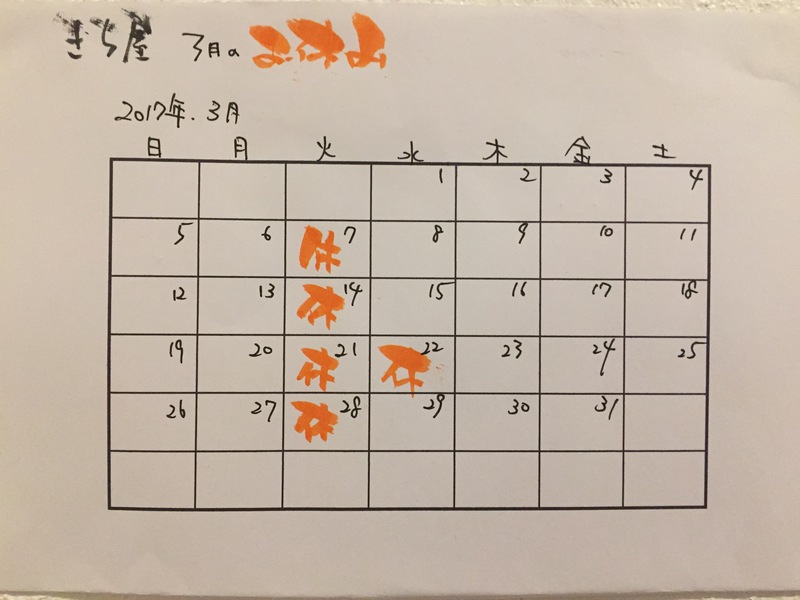 きち屋 3月の お休み
2017年.3月
日 月 火 水 木 金 土
1 2 3 4
5 6 休 7 8 9 10 11
12 13 休 14 15 16 17 18
19 20 休 21 休 22 23 24 25
26 27 休 28 29 30 31